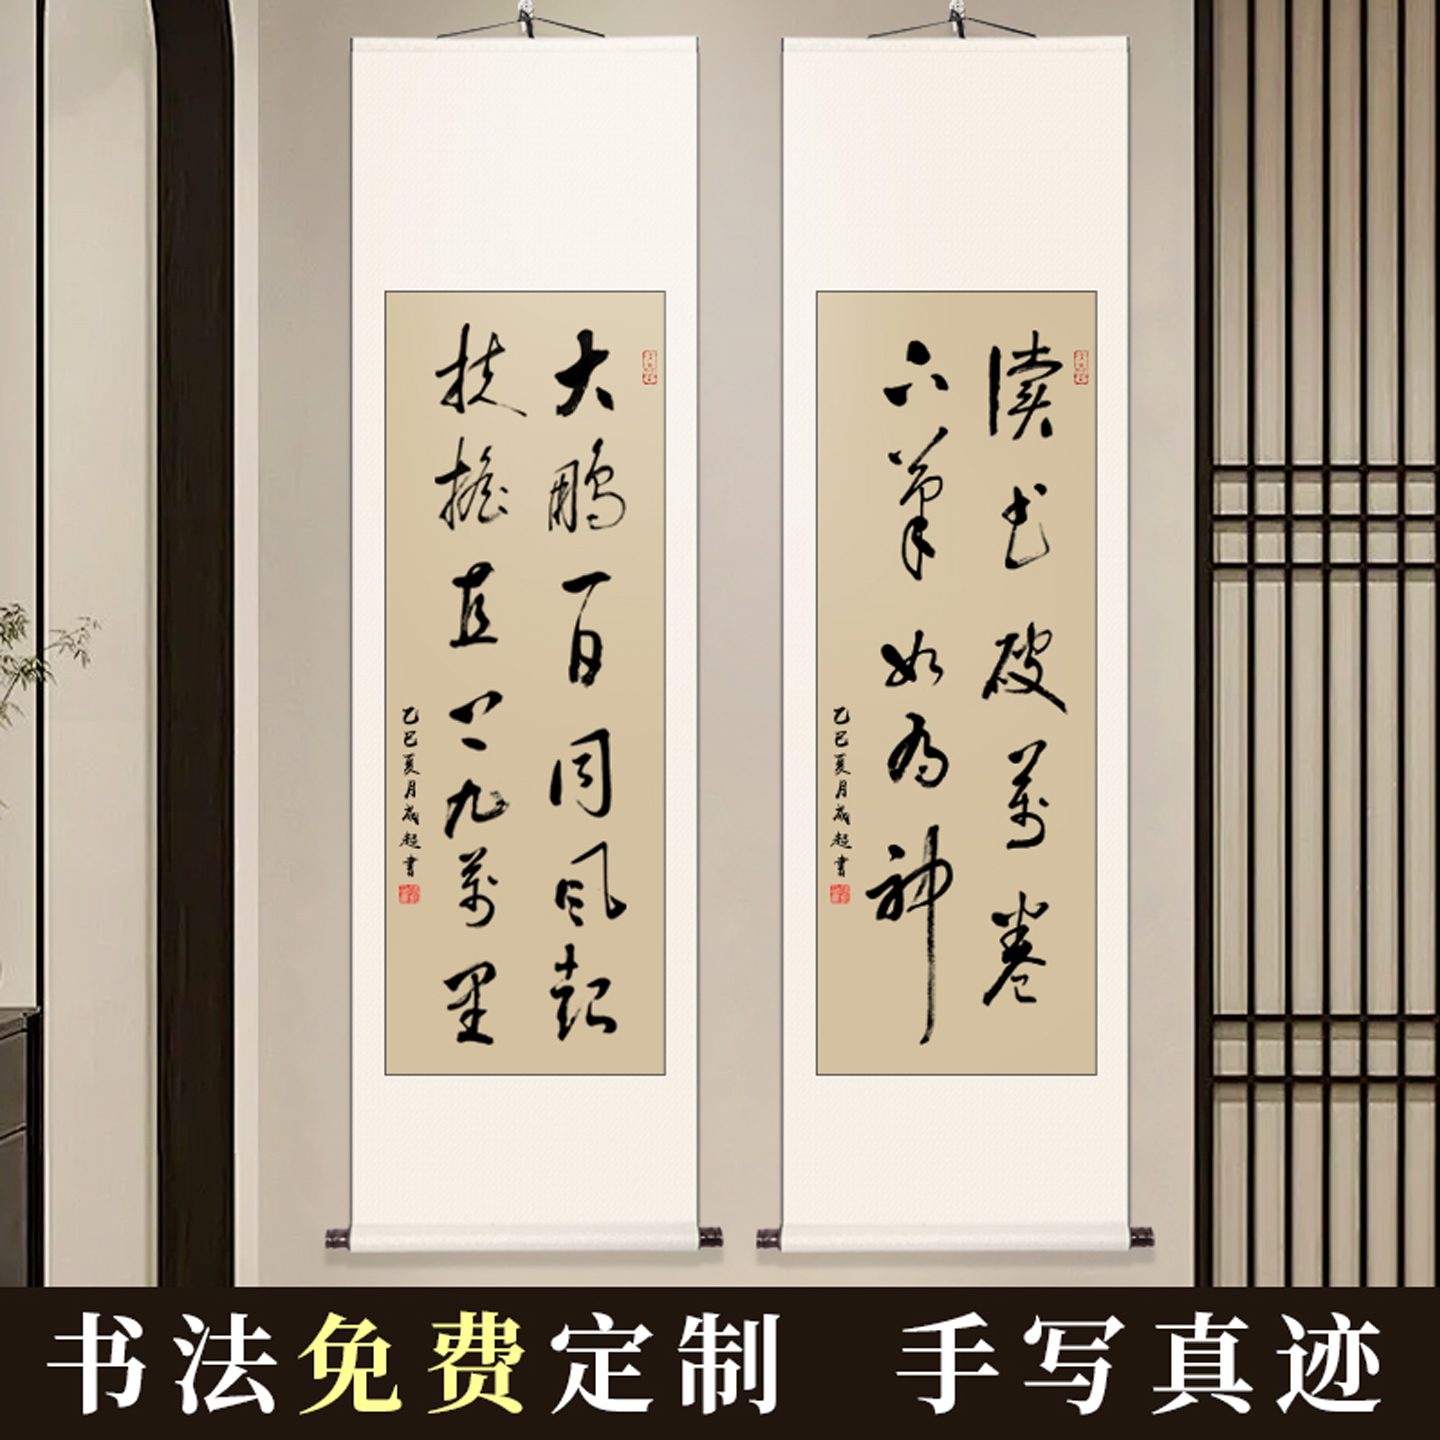 讀书破萬卷
下筆如有神
乙巳夏月成超書
大鹏一日同风起
扶摇直上九萬里
乙巳夏月成超書
书法免费定制 手写真迹